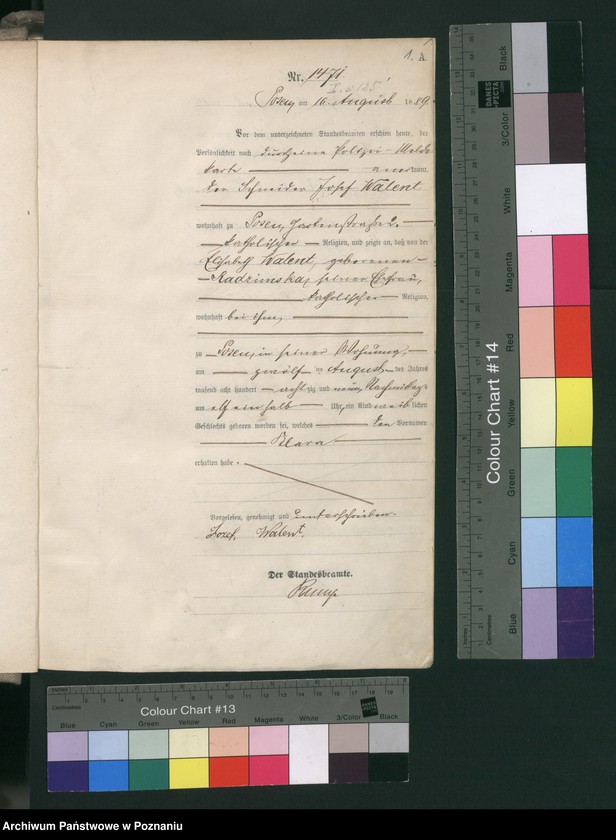 1. A
Nr. 1471.
Posen, am 16. August 1889.
Vor dem unterzeichneten Standesbeamten erschien heute, der
Persönlichkeit nach durch eine Polizei-Melde
karte
der Schneider Josef Walent
wohnhaft zu Posen, Gartenstraße 2.
katholischer Religion, und zeigte an, daß von der
Elisabeth Walent, geborenen
Radzimska, seiner Ehefrau,
katholischer Religion,
wohnhaft bei ihm,
zu Posen, in seiner Wohnung,
am zwölften August des Jahres
tausend acht hundert acht zig und neun, Nachmittags
um elf einhalb Uhr, ein Kind weiblichen
Geschlechts geboren worden sei, welches den Vornamen
Klara
erhalten habe.
Vorgelesen, genehmigt und unterschrieben
Jozef Walent.
Der Standesbeamte.
Colour Chart #14
DANES
PICTA
.COM
Black
3/Color
White
Magenta
Red
Yellow
Green
Cyan
Blue
Inches
Centimetres
Colour Chart #13
Inches
Centimetres
Blue Cyan Green Yellow Red Magenta White 3/Color Black
Archiwum Państwowe w Poznaniu